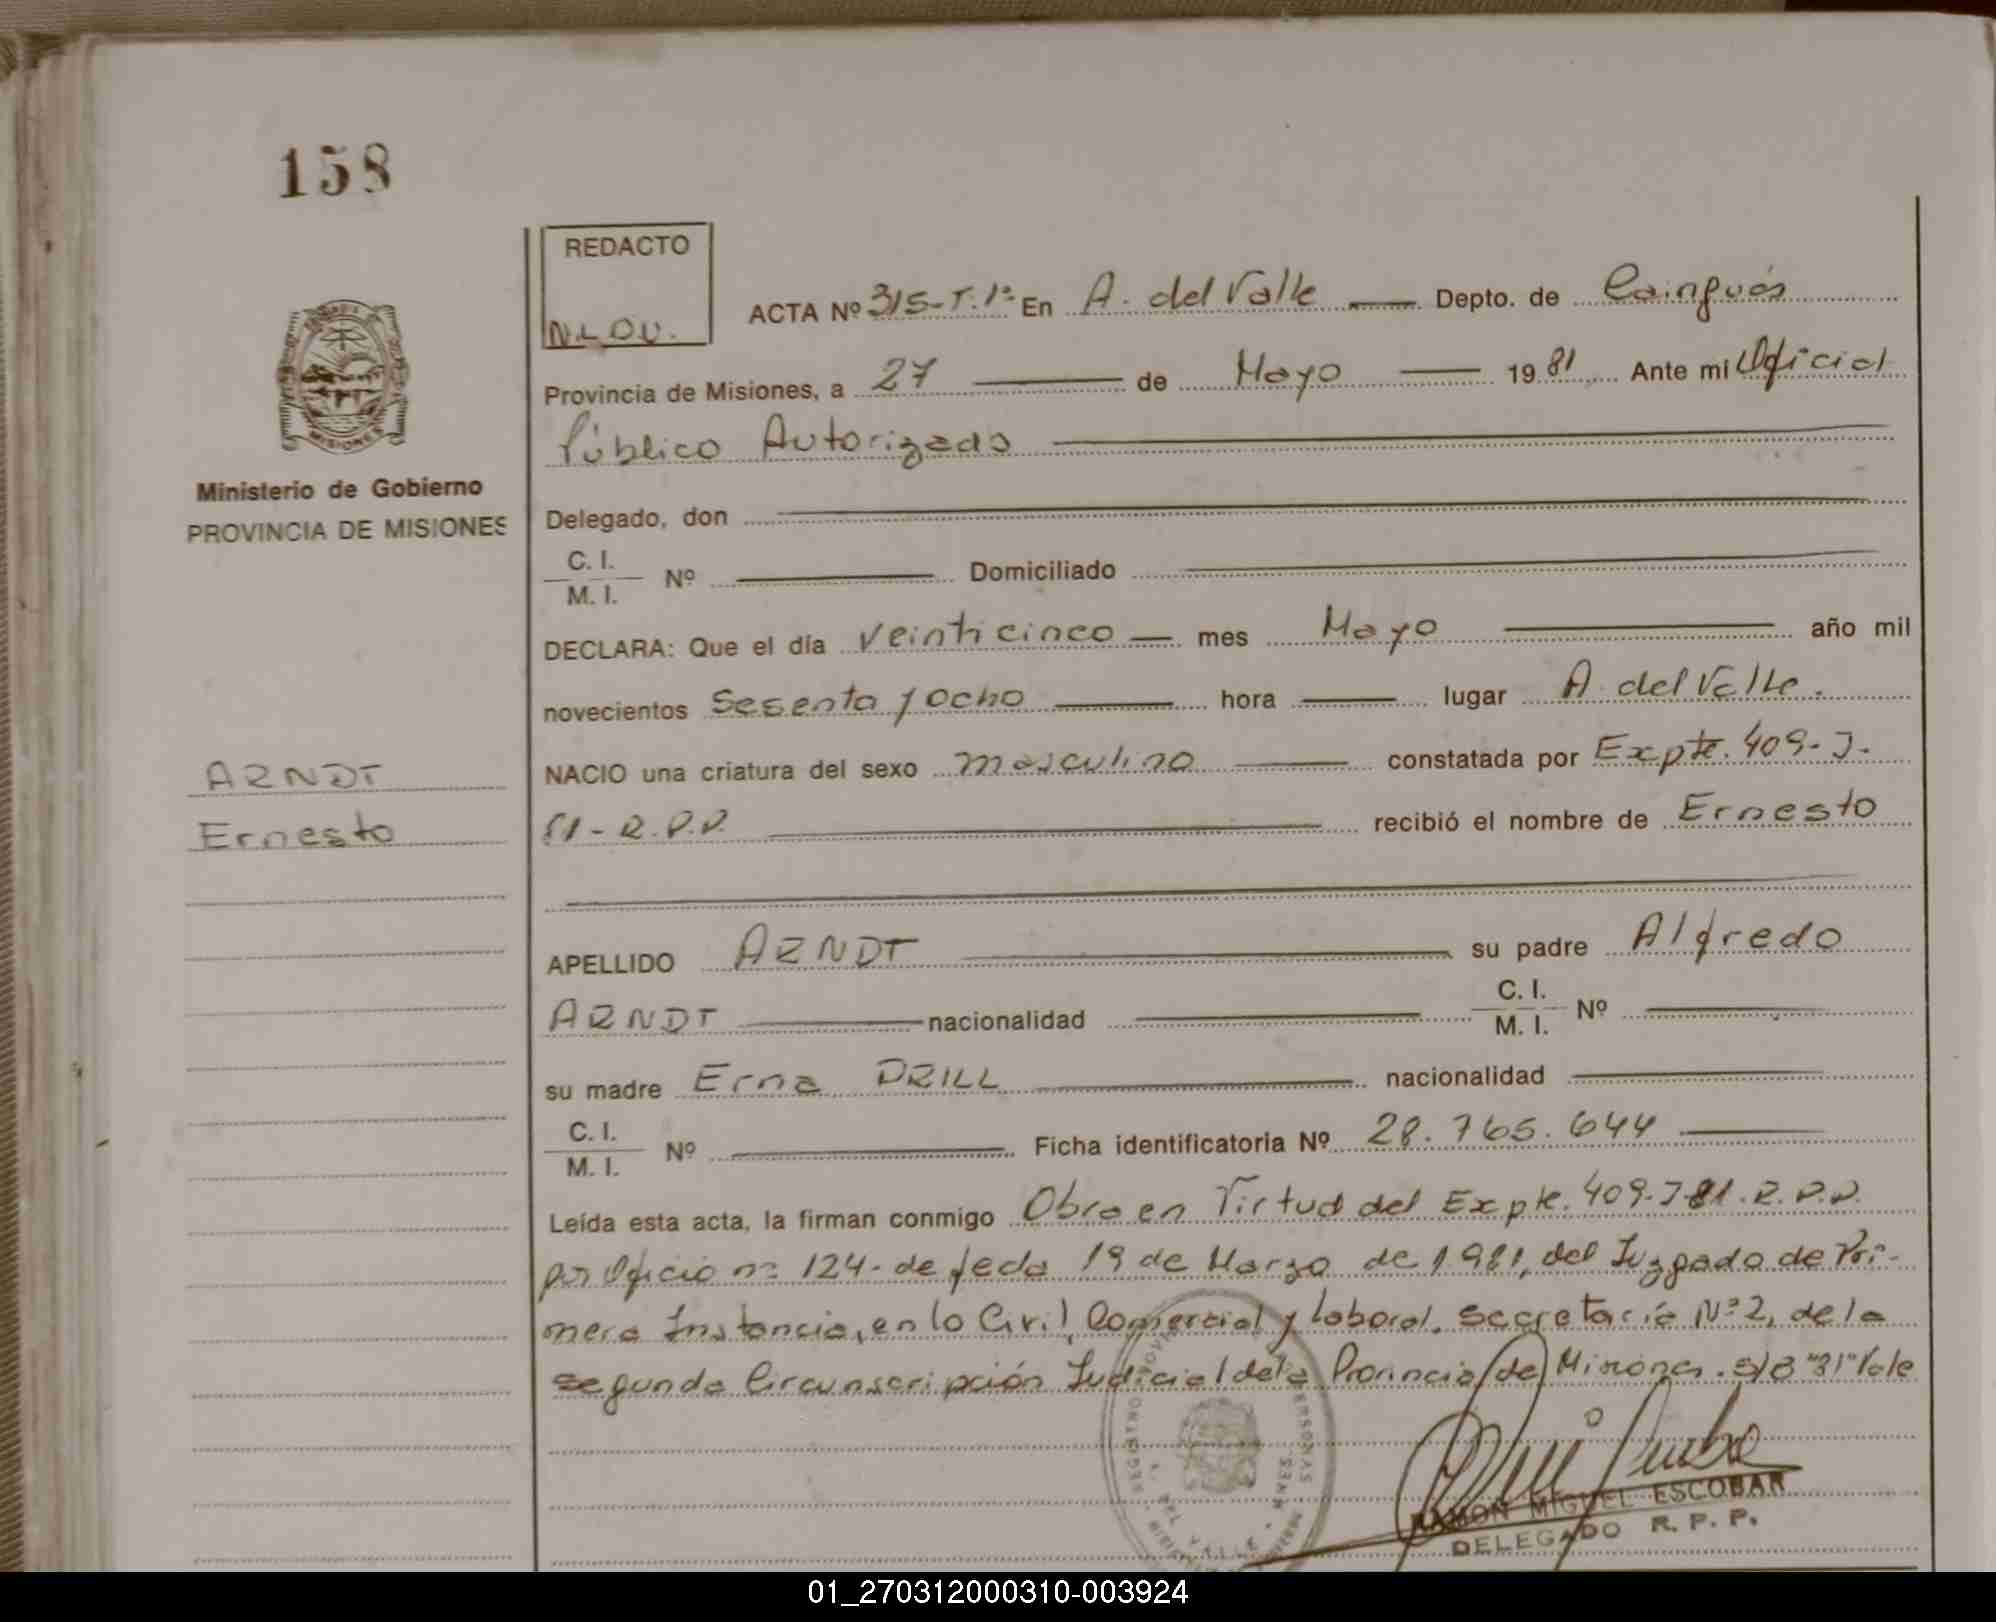 158
REDACTO
N.L.O.V.
ACTA Nº 315-T.1º En A. del Valle Depto. de Cainguás
Provincia de Misiones, a 27 de Mayo 1981 Ante mi Oficial
Público Autorizado
MISIONES
Ministerio de Gobierno
PROVINCIA DE MISIONES
Delegado, don
C. I.
M. I. Nº Domiciliado
DECLARA: Que el día veinticinco mes Mayo año mil
novecientos Sesenta y ocho hora lugar A. del Valle.
NACIO una criatura del sexo masculino constatada por Expte. 409-J-
81-R.P.P. recibió el nombre de Ernesto
ARNDT
Ernesto
APELLIDO ARNDT su padre Alfredo
ARNDT nacionalidad C. I. M. I. Nº
su madre Erna DRILL nacionalidad
C. I.
M. I. Nº Ficha identificatoria Nº 28.765.644
Leída esta acta, la firman conmigo Obra en Virtud del Expte. 409-J-81.R.P.P.
por Oficio nº 124-de feda 19 de Marzo de 1.981, del Juzgado de Pri-
mera Instancia, en lo Civil, Comercial y Laboral. Secretaría Nº 2, de la
segunda Circunscripción Judicial de la Provincia de Misiones. S/B "81" Vale
RAMON MIGUEL ESCOBAR
DELEGADO R. P. P.
01_270312000310-003924